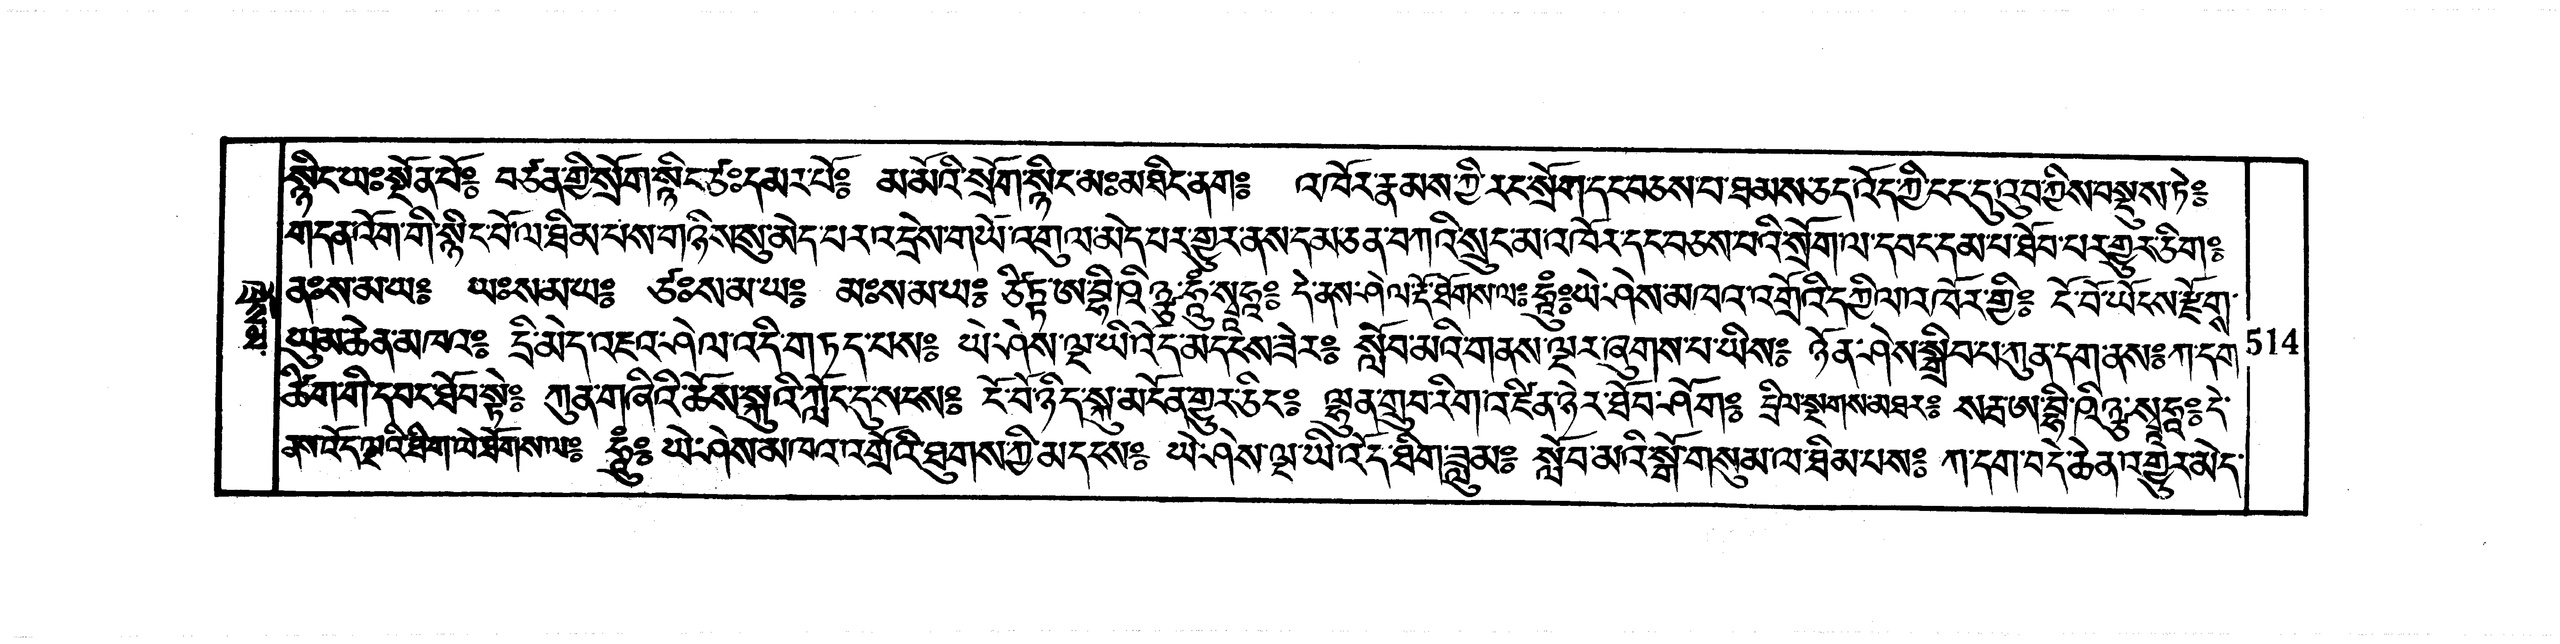 སྙིང་ཡཿསྔོན་པོ༔ བཙན་གྱི་སྲོག་སྙིང་ཙཿདམར་པོ༔ མ་མོའི་སྲོག་སྙིང་མཿམཐིང་ནག༔ འཁོར་རྣམས་ཀྱི་རང་སྲོག་དང་བཅས་པ་ཐམས་ཅད་འོད་ཀྱི་ངང་དུ་འུབ་ཀྱིས་བསྡུས་ཏེ༔
གདན་འོག་གི་སྙིང་པོ་ལ་ཐིམ་པས་གཉིས་སུ་མེད་པར་འདྲེས་གཡོ་འགུལ་མེད་པར་གྱུར་ནས་དམ་ཅན་བཀའི་སྲུང་མ་འཁོར་དང་བཅས་པའི་སྲོག་ལ་དབང་དམ་པ་ཐོབ་པར་གྱུར་ཅིག༔
ནཿས་མ་ཡ༔ ཡཿས་མ་ཡ༔ ཙཿས་མ་ཡ༔ མཿས་མ་ཡ༔ ཙིཏྟ་ཨ་བྷི་ཥིཉྩ་ཧཱུྃ་སྭཱཧཱ༔ དེ་ནས་ཤེལ་རྡོ་ཐོགས་ལ༔ ཧཱུྃ༔ཡེ་ཤེས་མཁའ་འགྲོའི་དཀྱིལ་འཁོར་གྱི༔ ངོ་བོ་ཡོངས་རྫོགས་
ཡུམ་ཆེན་མཁའ༔ དྲི་མེད་འཇའ་ཤེལ་འདི་གཏད་པས༔ ཡེ་ཤེས་ལྔ་ཡི་འོད་མདངས་ཟེར༔ སློབ་མའི་གནས་ལྔར་ཞུགས་པ་ཡིས༔ ཉོན་ཤེས་སྒྲིབ་པ་ཀུན་དག་ནས༔ཀ་དག
ཚིག་གི་དབང་ཐོབ་སྟེ༔ ཀུན་གཞིའི་ཆོས་སྐུའི་ཀློང་དུ་སངས༔ ངོ་བོ་ཉིད་སྐུ་མངོན་གྱུར་ཅིང༔ ལྷུན་གྲུབ་རིག་འཛིན་ཉེར་ཐོབ་ཤོག༔ དྲིལ་སྔགས་མཐར༔ སརྦ་ཨ་བྷི་ཥིཉྩ་སྭཱཧཱ༔ དེ་
ནས་འོད་ལྔའི་ཐིག་ལེ་ཐོགས་ལ༔ ཧཱུྃ༔ ཡེ་ཤེས་མཁའ་འགྲོའི་ཐུགས་ཀྱི་མདངས༔ ཡེ་ཤེས་ལྔ་ཡི་འོད་ཐིག་ཟླུམ༔ སློབ་མའི་སྒོ་གསུམ་ལ་ཐིམ་པས༔ ཀ་དག་བདེ་ཆེན་འགྱུར་མེད་
514